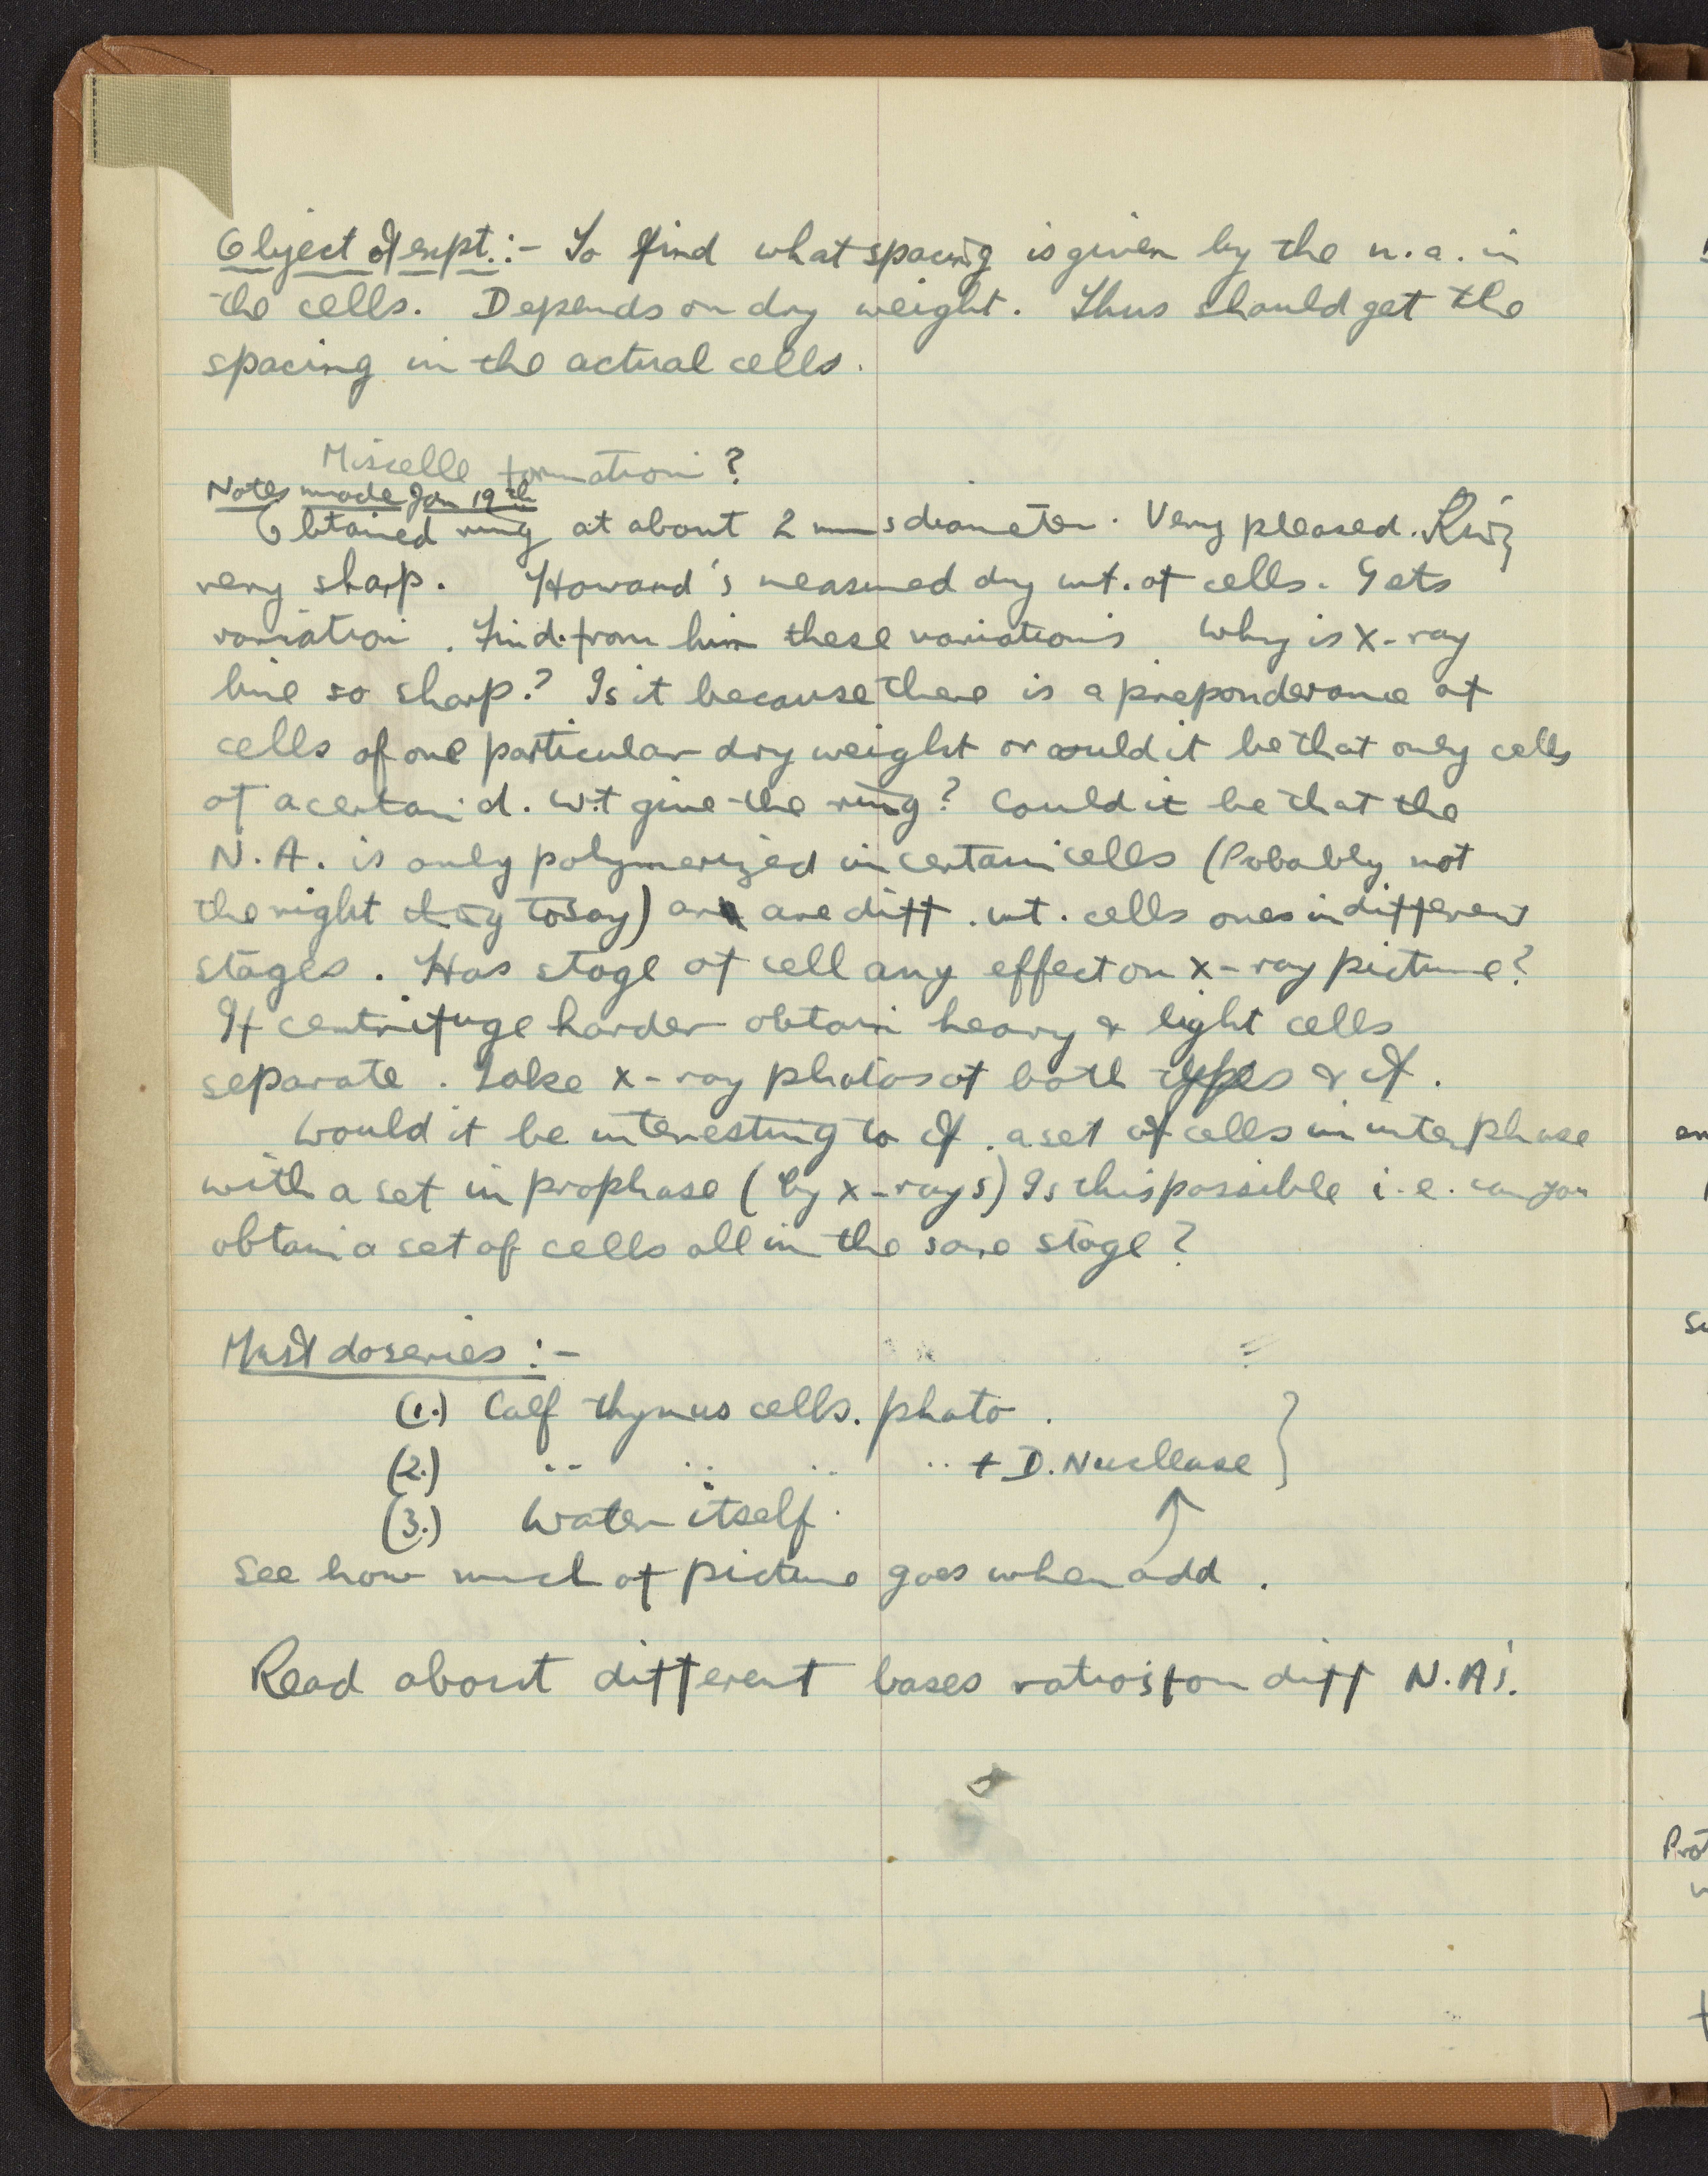 Object of expt.:- To find what spacing is given by the n.a. in
the cells. Depends on dry weight. Thus should get the
spacing in the actual cells.
Miscelle formation?
Notes made Jan 19th
Obtained ring at about 2 mms diameter. Very pleased. Ring
very sharp. Howard's measured dry wt. of cells. Gets
variation. Find from him these variations Why is X-ray
line so sharp? Is it because there is a preponderance of
cells of one particular dry weight or could it be that only cells
of a certain d. wt give the ring? Could it be that the
N.A. is only polymerized in certain cells (Probably not
the right thing to say) are diff. wt. cells ones in different
stages. Has stage of cell any effect on x-ray picture?
If centrifuge harder obtain heavy & light cells
separate. Take x-ray photos of both types & cf.
Would it be interesting to cf. a set of cells in interphase
with a set in prophase (by x-rays) Is this possible i.e. can you
obtain a set of cells all in the same stage?
Must do series :-
(1.) Calf thymus cells. photo.
(2.) " " " " + D. Nuclease }
(3.) Water itself.
See how much of picture goes when add.
Read about different bases ratios for diff N.A's.